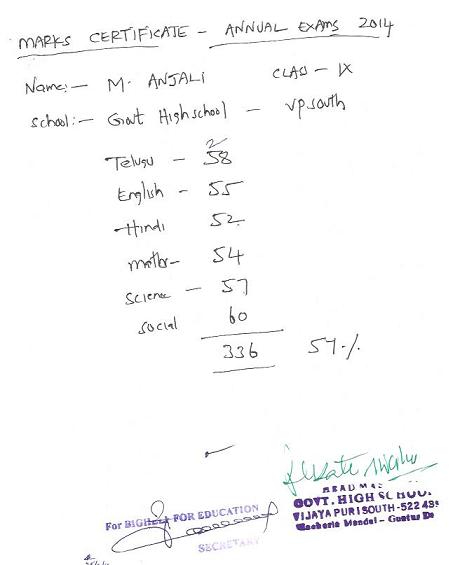 MARKS CERTIFICATE - ANNUAL EXAMS 2014
Name:- M. ANJALI CLASS - IX
School:- Govt High school - VP South
Telugu - 58
English - 55
Hindi 52
maths- 54
Science - 57
Social 60
336 57%
HEAD MAS
GOVT. HIGH SCHOOL
VIJAYAPURI SOUTH-522 439
Macherla Mandal - Guntur Dt
For BIGHelp FOR EDUCATION
SECRETARY